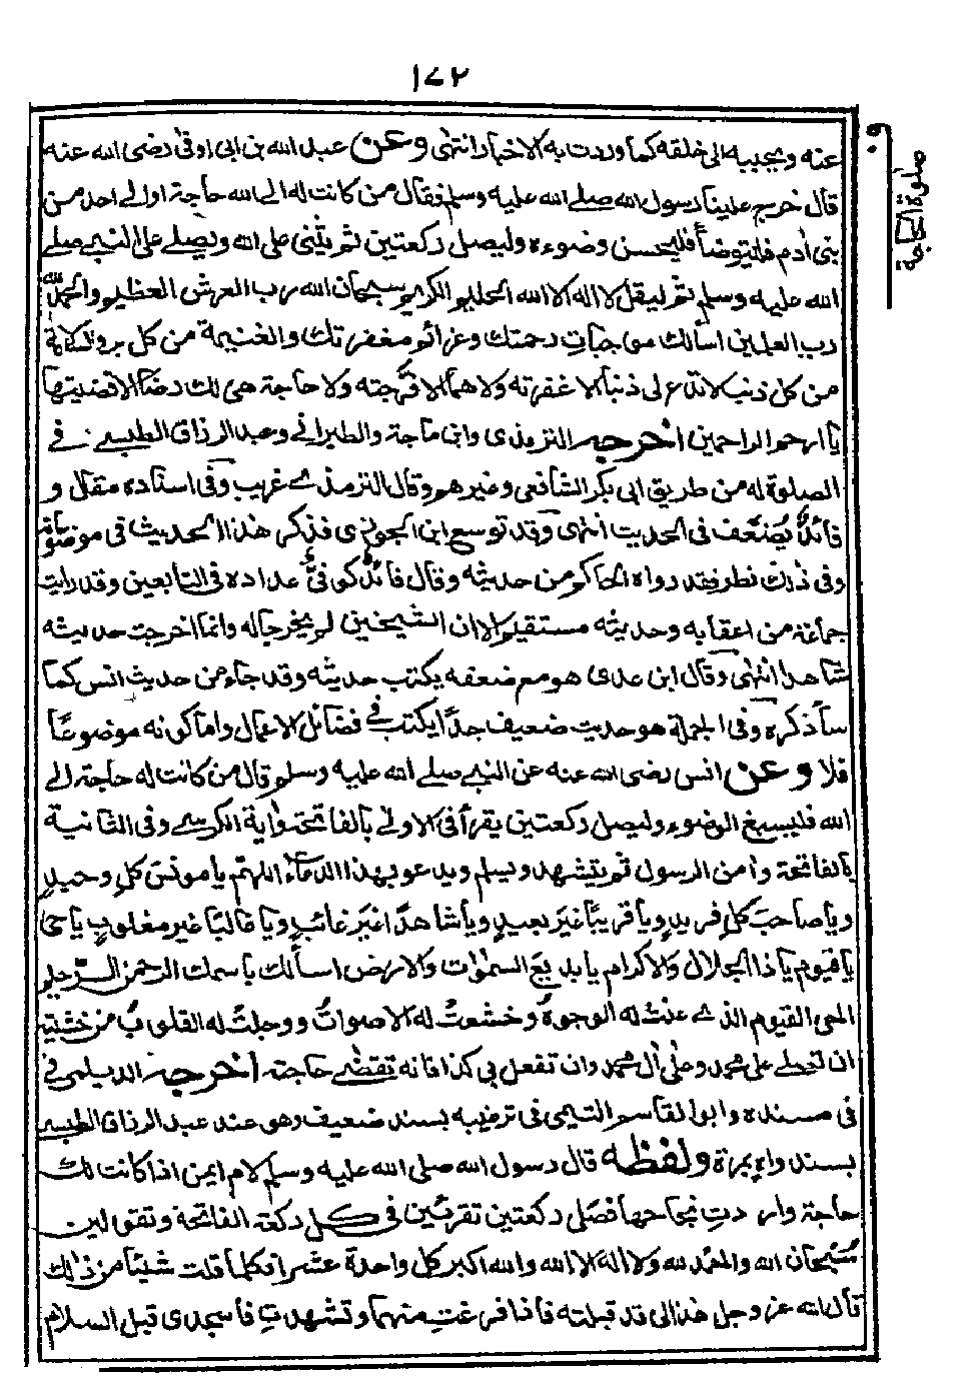 ١٧٢
صلوة الحاجة
عنه ويجببه الى خلقه كما وردت به الاخبار انتهى وعن عبد الله بن ابى اوفى رضى الله عنه
قال خرج علينا رسول الله صلے الله عليه وسلم فقال من كانت له الى الله حاجة او الى احد من
بنى اٰدم فليتوضأ فليحسن وضوءه وليصل ركعتين ثم يثنى على الله ويصلے على النبے صلے
الله عليه وسلم ثم ليقل لا اله الا الله الحليم الكريم سبحان الله رب العرش العظيم والحمد لله
رب العلمين اسألك موجباتِ رحمتك وعزائم مغفرتك والغنيمة من كل بر والسلامة
من كل ذنب لا تدع لى ذنبا الا غفرته ولا هما الا فرجته ولا حاجة هى لك رضًا الا قضيتها
يا ارحم الراحمين اخرجه الترمذى وابن ماجة والطبرانى وعبد الرزاق الطبسے فے
الصلوة له من طريق ابى بكر الشافعى وغيرهم وقال الترمذے غريب وفى اسناده مقال و
فائدٌ يُضعَّف فى الحديث انتهى وقد توسع ابن الجوزى فذكر هذا الحديث فى موضوعاته
وفى ذلك نظر فقد رواه الحاكم من حديثه وقال فائد كوفىٌّ عداده فى التابعين وقد رايت
جماعة من اعقابه وحديثه مستقيم الا ان الشيخين لم يخرجا له وانما اخرجت حديثه
شاهدا انتهى وقال ابن عدى هو مع ضعفه يكتب حديثه وقد جاء من حديث انس كما
سأذكره وفى الجملة هو حديث ضعيف جدًّا يكتب فى فضائل الاعمال واما كونه موضوعًا
فلا وعن انس رضى الله عنه عن النبے صلے الله عليه وسلم قال من كانت له حاجة الے
الله فليسبغ الوضوء وليصل ركعتين يقرأ فى الاولى بالفاتحة واٰية الكرسے وفى الثانية
بالفاتحة واٰمن الرسول ثم يتشهد ويسلم ويدعو بهذا الدعاء اللهم يا مونسَ كلِ وحيدٍ
ويا صاحبَ كلِ فريدٍ ويا قريبًا غيرَ بعيدٍ ويا شاهدًا غيرَ غائبٍ ويا غالبًا غير مغلوبٍ يا حى
يا قيوم يا ذا الجلال والاكرام يا بديعَ السمٰوات والارض اسألك باسمك الرحمن الرّحيم
الحى القيوم الذے عنت له الوجوهُ وخشعتْ له الاصواتُ ووجلتْ له القلوبُ من خشيته
ان تصلے على محمد وعلى اٰل محمد وان تفعل بى كذا فانه تقضٰے حاجته اخرجه الديلمى فے
فى مسنده وابو القاسم التيمى فى ترغيبه بسند ضعيف وهو عند عبد الرزاق الطبسے
بسند واهٍ بمرة ولفظه قال رسول الله صلى الله عليه وسلم لام ايمن اذا كانت لك
حاجة واردتِ نجاحها فصَلى ركعتين تقرئين فى كل ركعة الفاتحة وتقولين
سُبْحان الله والحمْد لله ولا اله الا الله والله اكبر كل واحدة عشرا فكلما قلت شيئا من ذٰلك
قال الله عز وجل هذا لى قد قبلته فاذا فرغتِ منهما وتشهدتِ فاسجدى قبل السلام